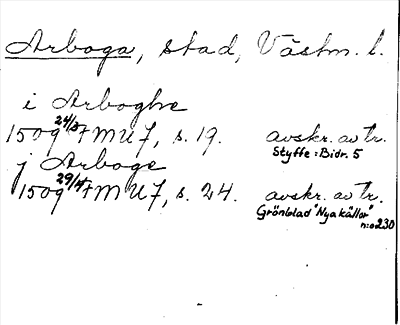 Arboga, stad, Västm. l.
i Arboghe
1509 24/3 FMU 7, s. 19. avskr. av tr.
Styffe: Bidr. 5
j Arboge
1509 29/4 FMU 7, s. 24. avskr. av tr.
Grönblad "Nya källor"
n:o 230